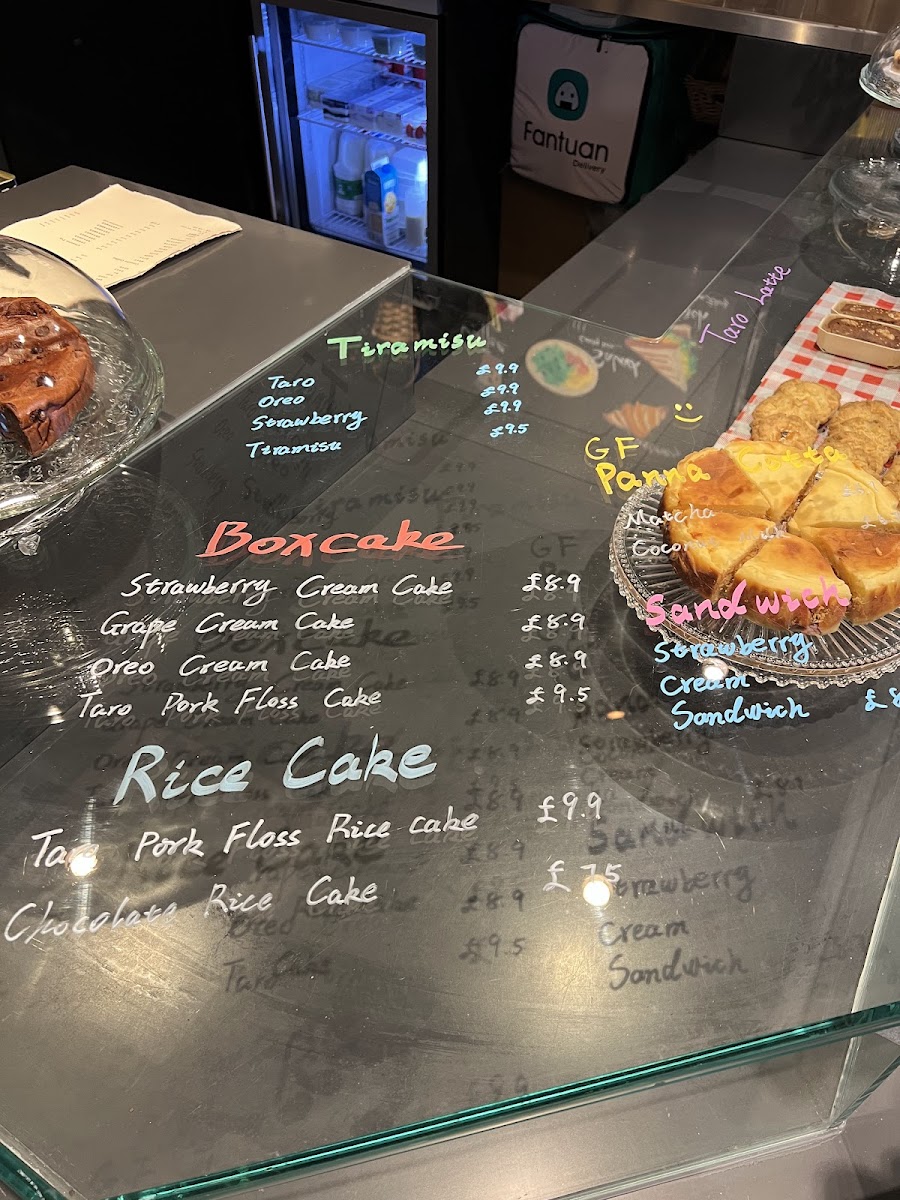 Fantuan
Delivery
Taro Latte
Tiramisu
Taro £9.9
Oreo £9.9
Strawberry £9.9
Tiramisu £9.5
GF
Panna Cotta
Matcha
Coconut Milk
Boxcake
Strawberry Cream Cake £8.9
Grape Cream Cake £8.9
Oreo Cream Cake £8.9
Taro Pork Floss Cake £9.5
Sandwich
Strawberry
Cream
Sandwich
Rice Cake
Taro Pork Floss Rice cake £9.9
Chocolate Rice Cake £7.5